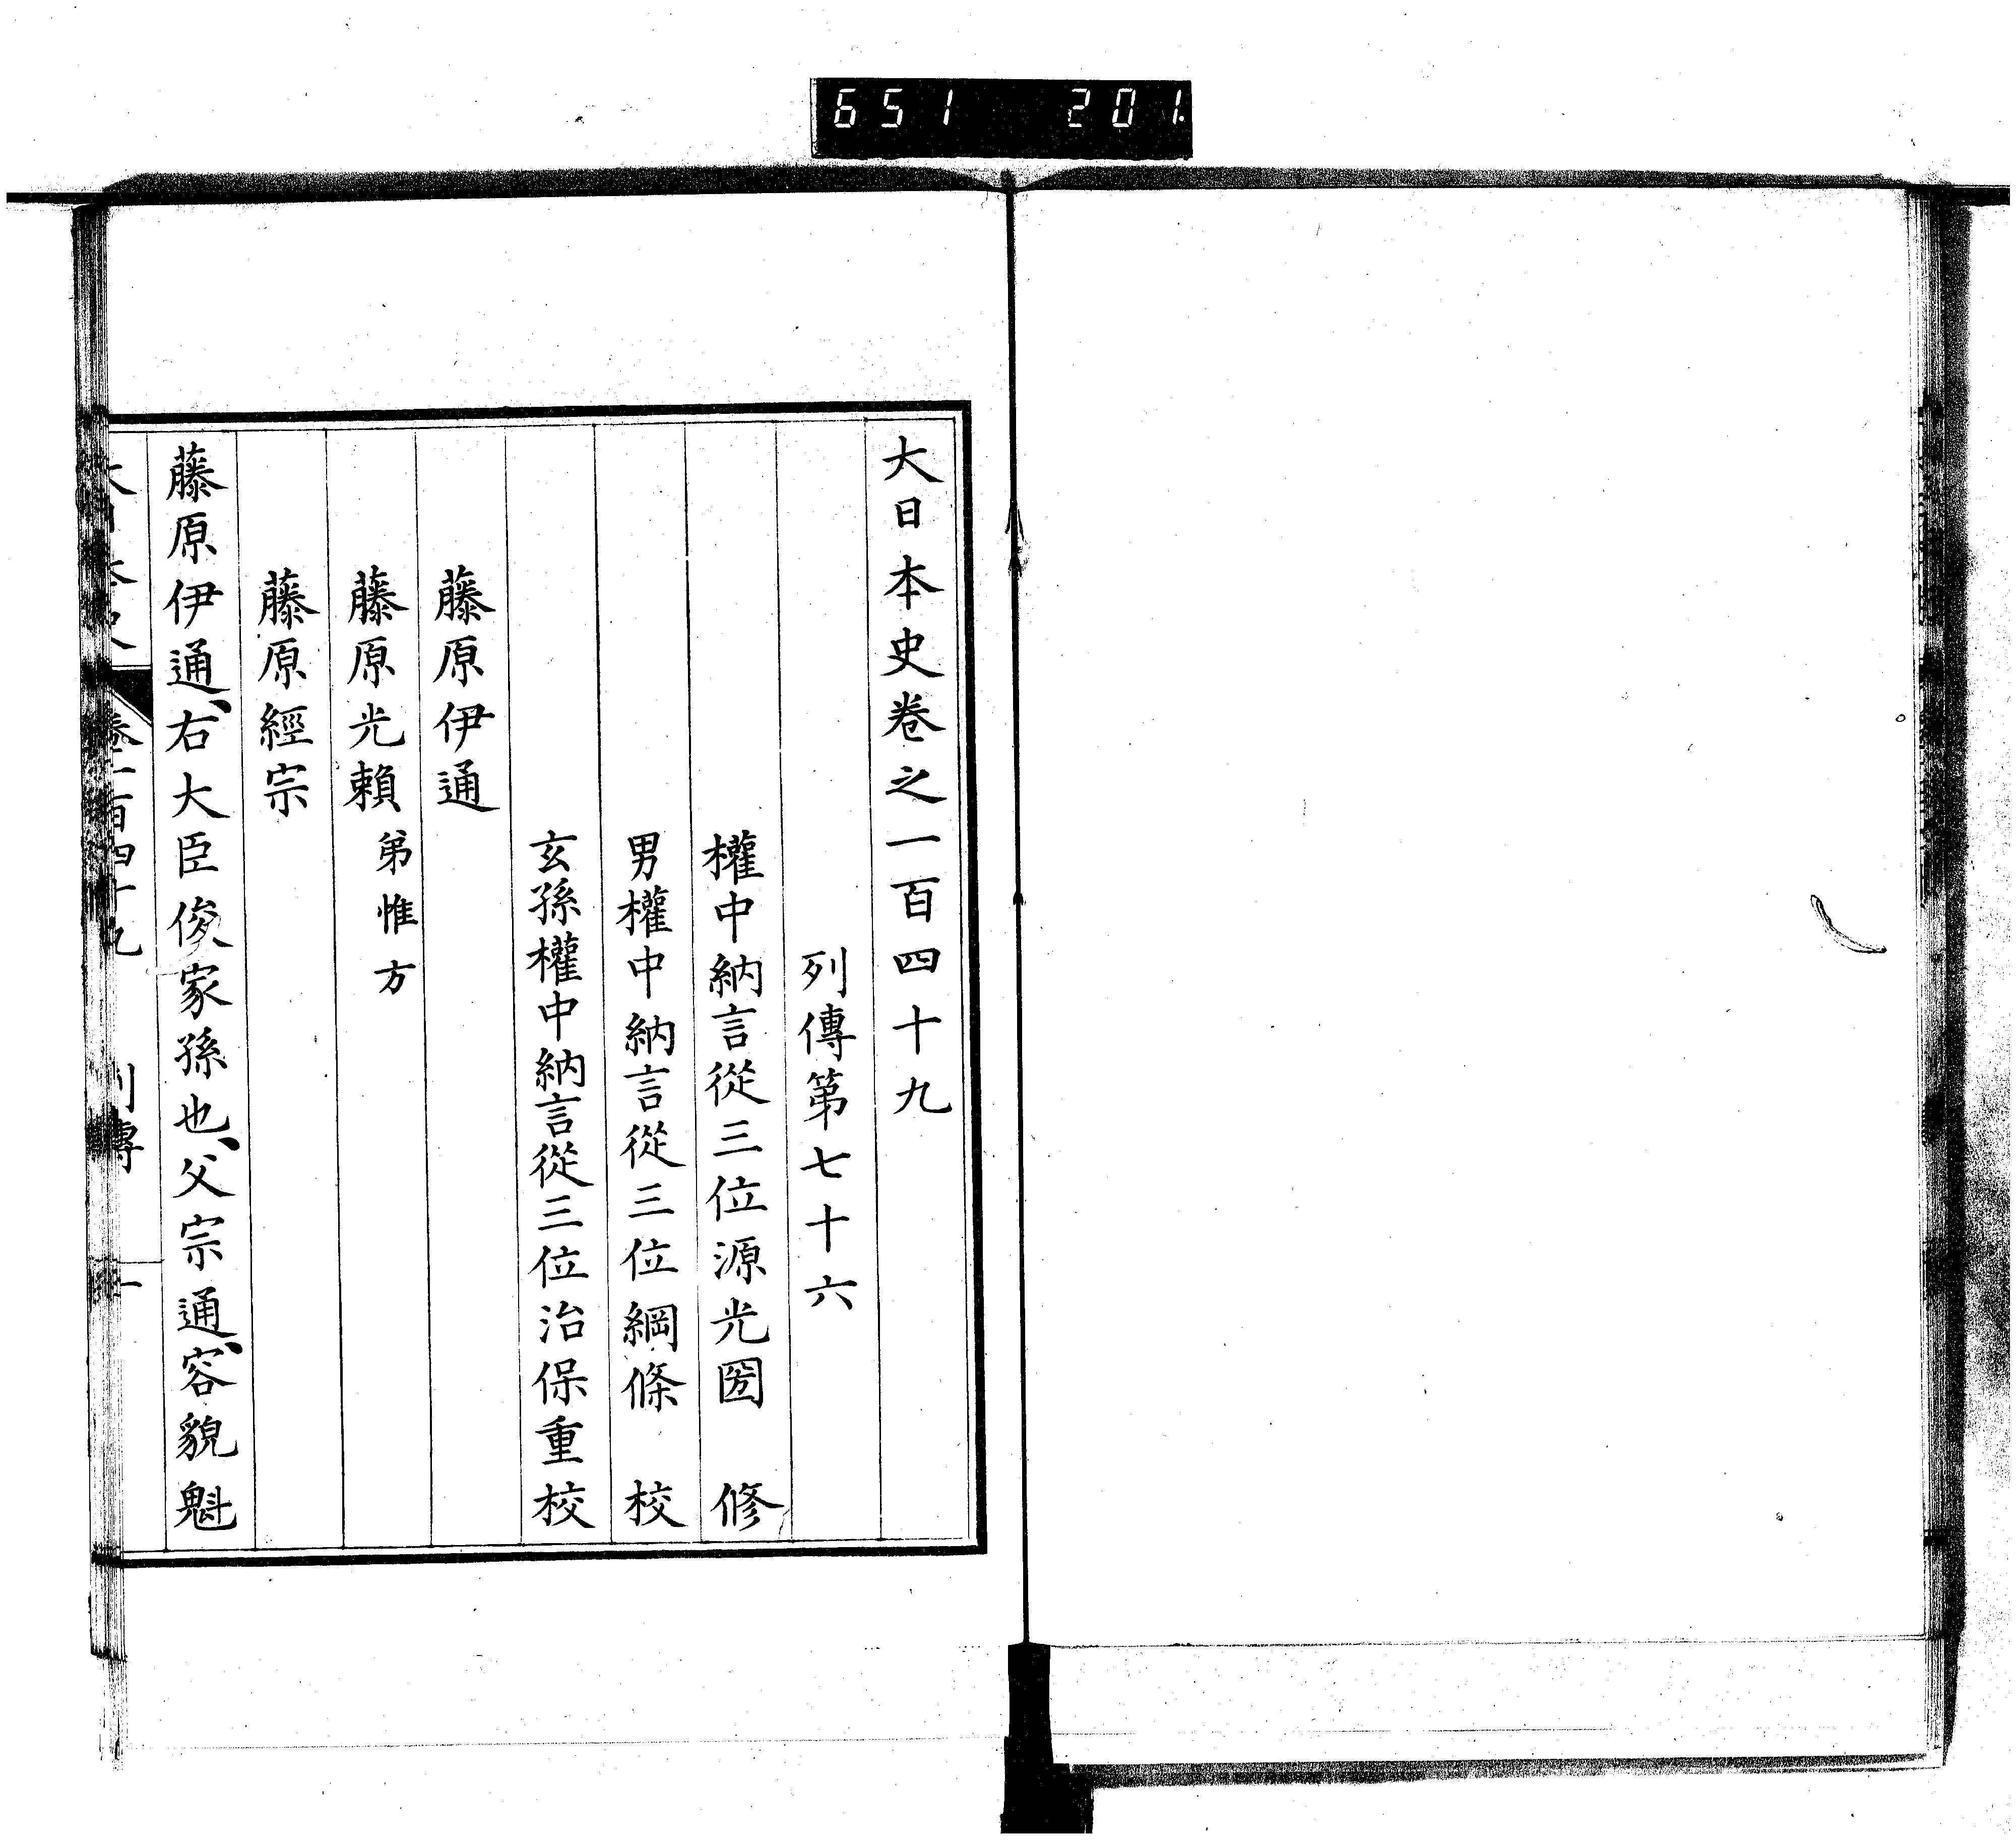 651 201
大日本史卷之一百四十九
列傳第七十六
權中納言從三位源光圀 修
男權中納言從三位綱條 校
玄孫權中納言從三位治保重校
藤原伊通
藤原光賴 弟惟方
藤原經宗
藤原伊通、右大臣俊家孫也、父宗通、容貌魁
大日本史 卷一百四十九 列傳 一